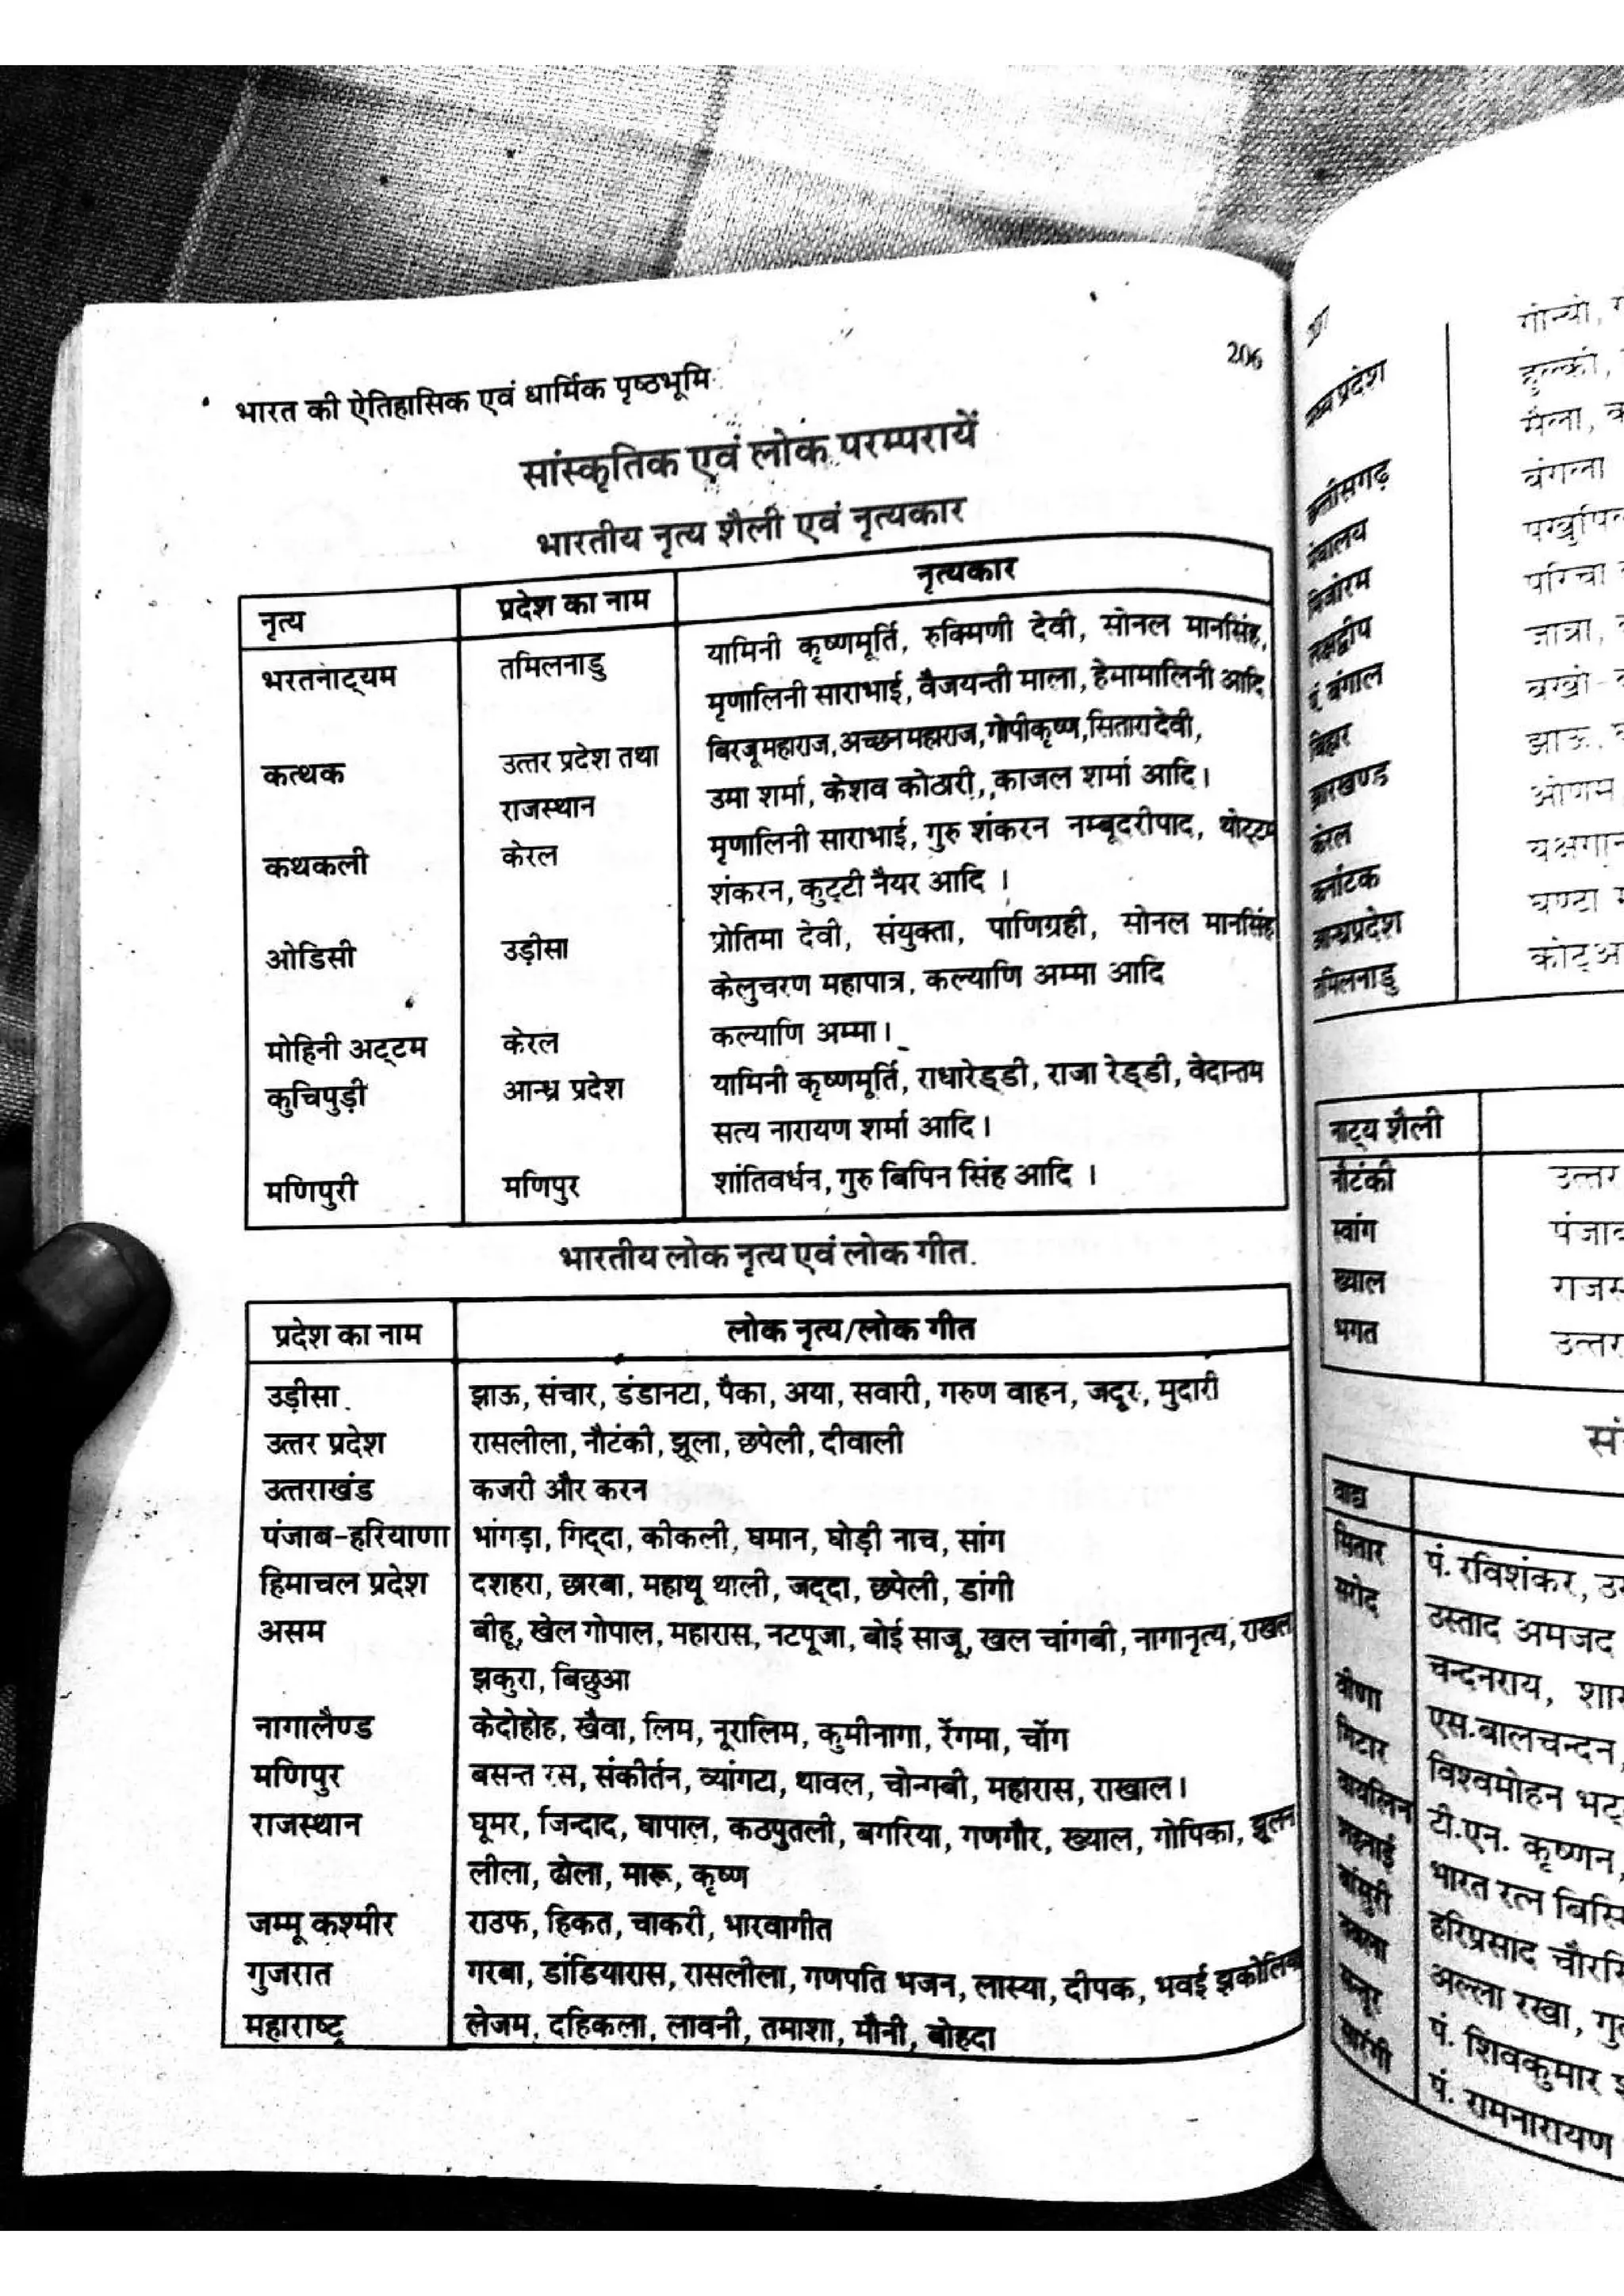 भारत की ऐतिहासिक एवं धार्मिक पृष्ठभूमि 206
सांस्कृतिक एवं लोक परम्परायें
भारतीय नृत्य शैली एवं नृत्यकार
नृत्य प्रदेश का नाम नृत्यकार
भरतनाट्यम तमिलनाडु यामिनी कृष्णमूर्ति, रुक्मिणी देवी, सोनल मानसिंह,
मृणालिनी साराभाई, वैजयन्ती माला, हेमामालिनी आदि
कत्थक उत्तर प्रदेश तथा बिरजू महाराज, अच्छन महाराज, गोपीकृष्ण, सितारा देवी,
राजस्थान उमा शर्मा, केशव कोठारी, काजल शर्मा आदि।
कथकली केरल मृणालिनी साराभाई, गुरु शंकरन नम्बूदरीपाद, थोट्टम
शंकरन, कुट्टी नैयर आदि ।
ओडिसी उड़ीसा प्रोतिमा देवी, संयुक्ता, पाणिग्रही, सोनल मानसिंह
केलुचरण महापात्र, कल्याणि अम्मा आदि
मोहिनी अट्टम केरल कल्याणि अम्मा।
कुचिपुड़ी आन्ध्र प्रदेश यामिनी कृष्णमूर्ति, राधारेड्डी, राजा रेड्डी, वेदान्तम
सत्य नारायण शर्मा आदि।
मणिपुरी मणिपुर शांतिवर्धन, गुरु बिपिन सिंह आदि ।
भारतीय लोक नृत्य एवं लोक गीत
प्रदेश का नाम लोक नृत्य/लोक गीत
उड़ीसा झाऊ, संचार, डंडानटा, पैका, अया, सवारी, गरुण वाहन, जदूर, मुदारी
उत्तर प्रदेश रासलीला, नौटंकी, झूला, छपेली, दीवाली
उत्तराखंड कजरी और करन
पंजाब-हरियाणा भांगड़ा, गिद्दा, कीकली, घमान, घोड़ी नाच, सांग
हिमाचल प्रदेश दशहरा, छारबा, महाथू थाली, जद्दा, छपेली, डांगी
असम बीहू, खेल गोपाल, महारास, नटपूजा, बोई साजू, खल चांगबी, नागानृत्य, राखल
झकुरा, बिछुआ
नागालैण्ड केदोहोह, खैवा, लिम, नूरालिम, कुमीनागा, रेंगमा, चोंग
मणिपुर बसन्त रस, संकीर्तन, व्यांगटा, थावल, चोन्गबी, महारास, राखाल।
राजस्थान घूमर, जिन्दाद, घापाल, कठपुतली, बगरिया, गणगौर, ख्याल, गोपिका, झूलन
लीला, ढोला, मारू, कृष्ण
जम्मू कश्मीर राउफ, हिकत, चाकरी, भारवागीत
गुजरात गरबा, डांडियारास, रासलीला, गणपति भजन, लास्या, दीपक, भवई
महाराष्ट्र लेजम, दहिकला, लावनी, तमाशा, मौनी, बोहदा
केरल
तमिलनाडु
नाट्य शैली
नौटंकी उत्तर
स्वांग
ख्याल
भगत उत्तर
वाद्य
सितार पं. रविशंकर,
सरोद उस्ताद अमजद
चन्दनराय,
वीणा एस.बालचन्दन,
गिटार विश्वमोहन
वायलिन टी.एन. कृष्णन,
भारत रत्न
बांसुरी हरिप्रसाद
अल्ला रखा,
पं. शिवकुमार
पं. रामनारायण